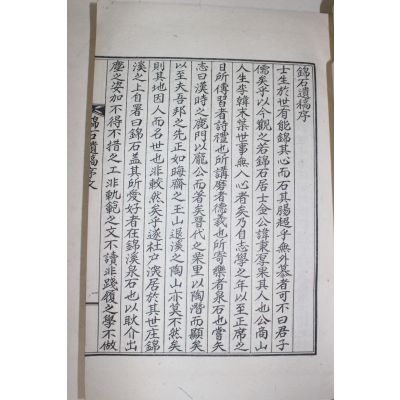 錦石遺稿序
士生於世有能錦其心而石其腸超乎無外慕者可不曰君子
儒矣乎以今觀之若錦石居士金公諱秉厚果其人也公高山
人生李韓末葉世事無入心者矣乃自志學之年以至正席之
日所傳習者詩禮也所講磨者德義也所寄樂者泉石也嘗矣
志曰漢時之鹿門以龐公而著矣晉代之栗里以陶潛而顯矣
以至夫吾邦之先正如晦齋之玉山退溪之陶山亦莫不然矣
則其地因人而名世也非較然矣乎遂杜戶深居於其世庄錦
溪之上自署曰錦石盖其所愛好者在錦溪泉石也以耿介出
塵之姿加不得不措之工非軌範之文不讀非踐履之學不做
錦石遺稿序文
一